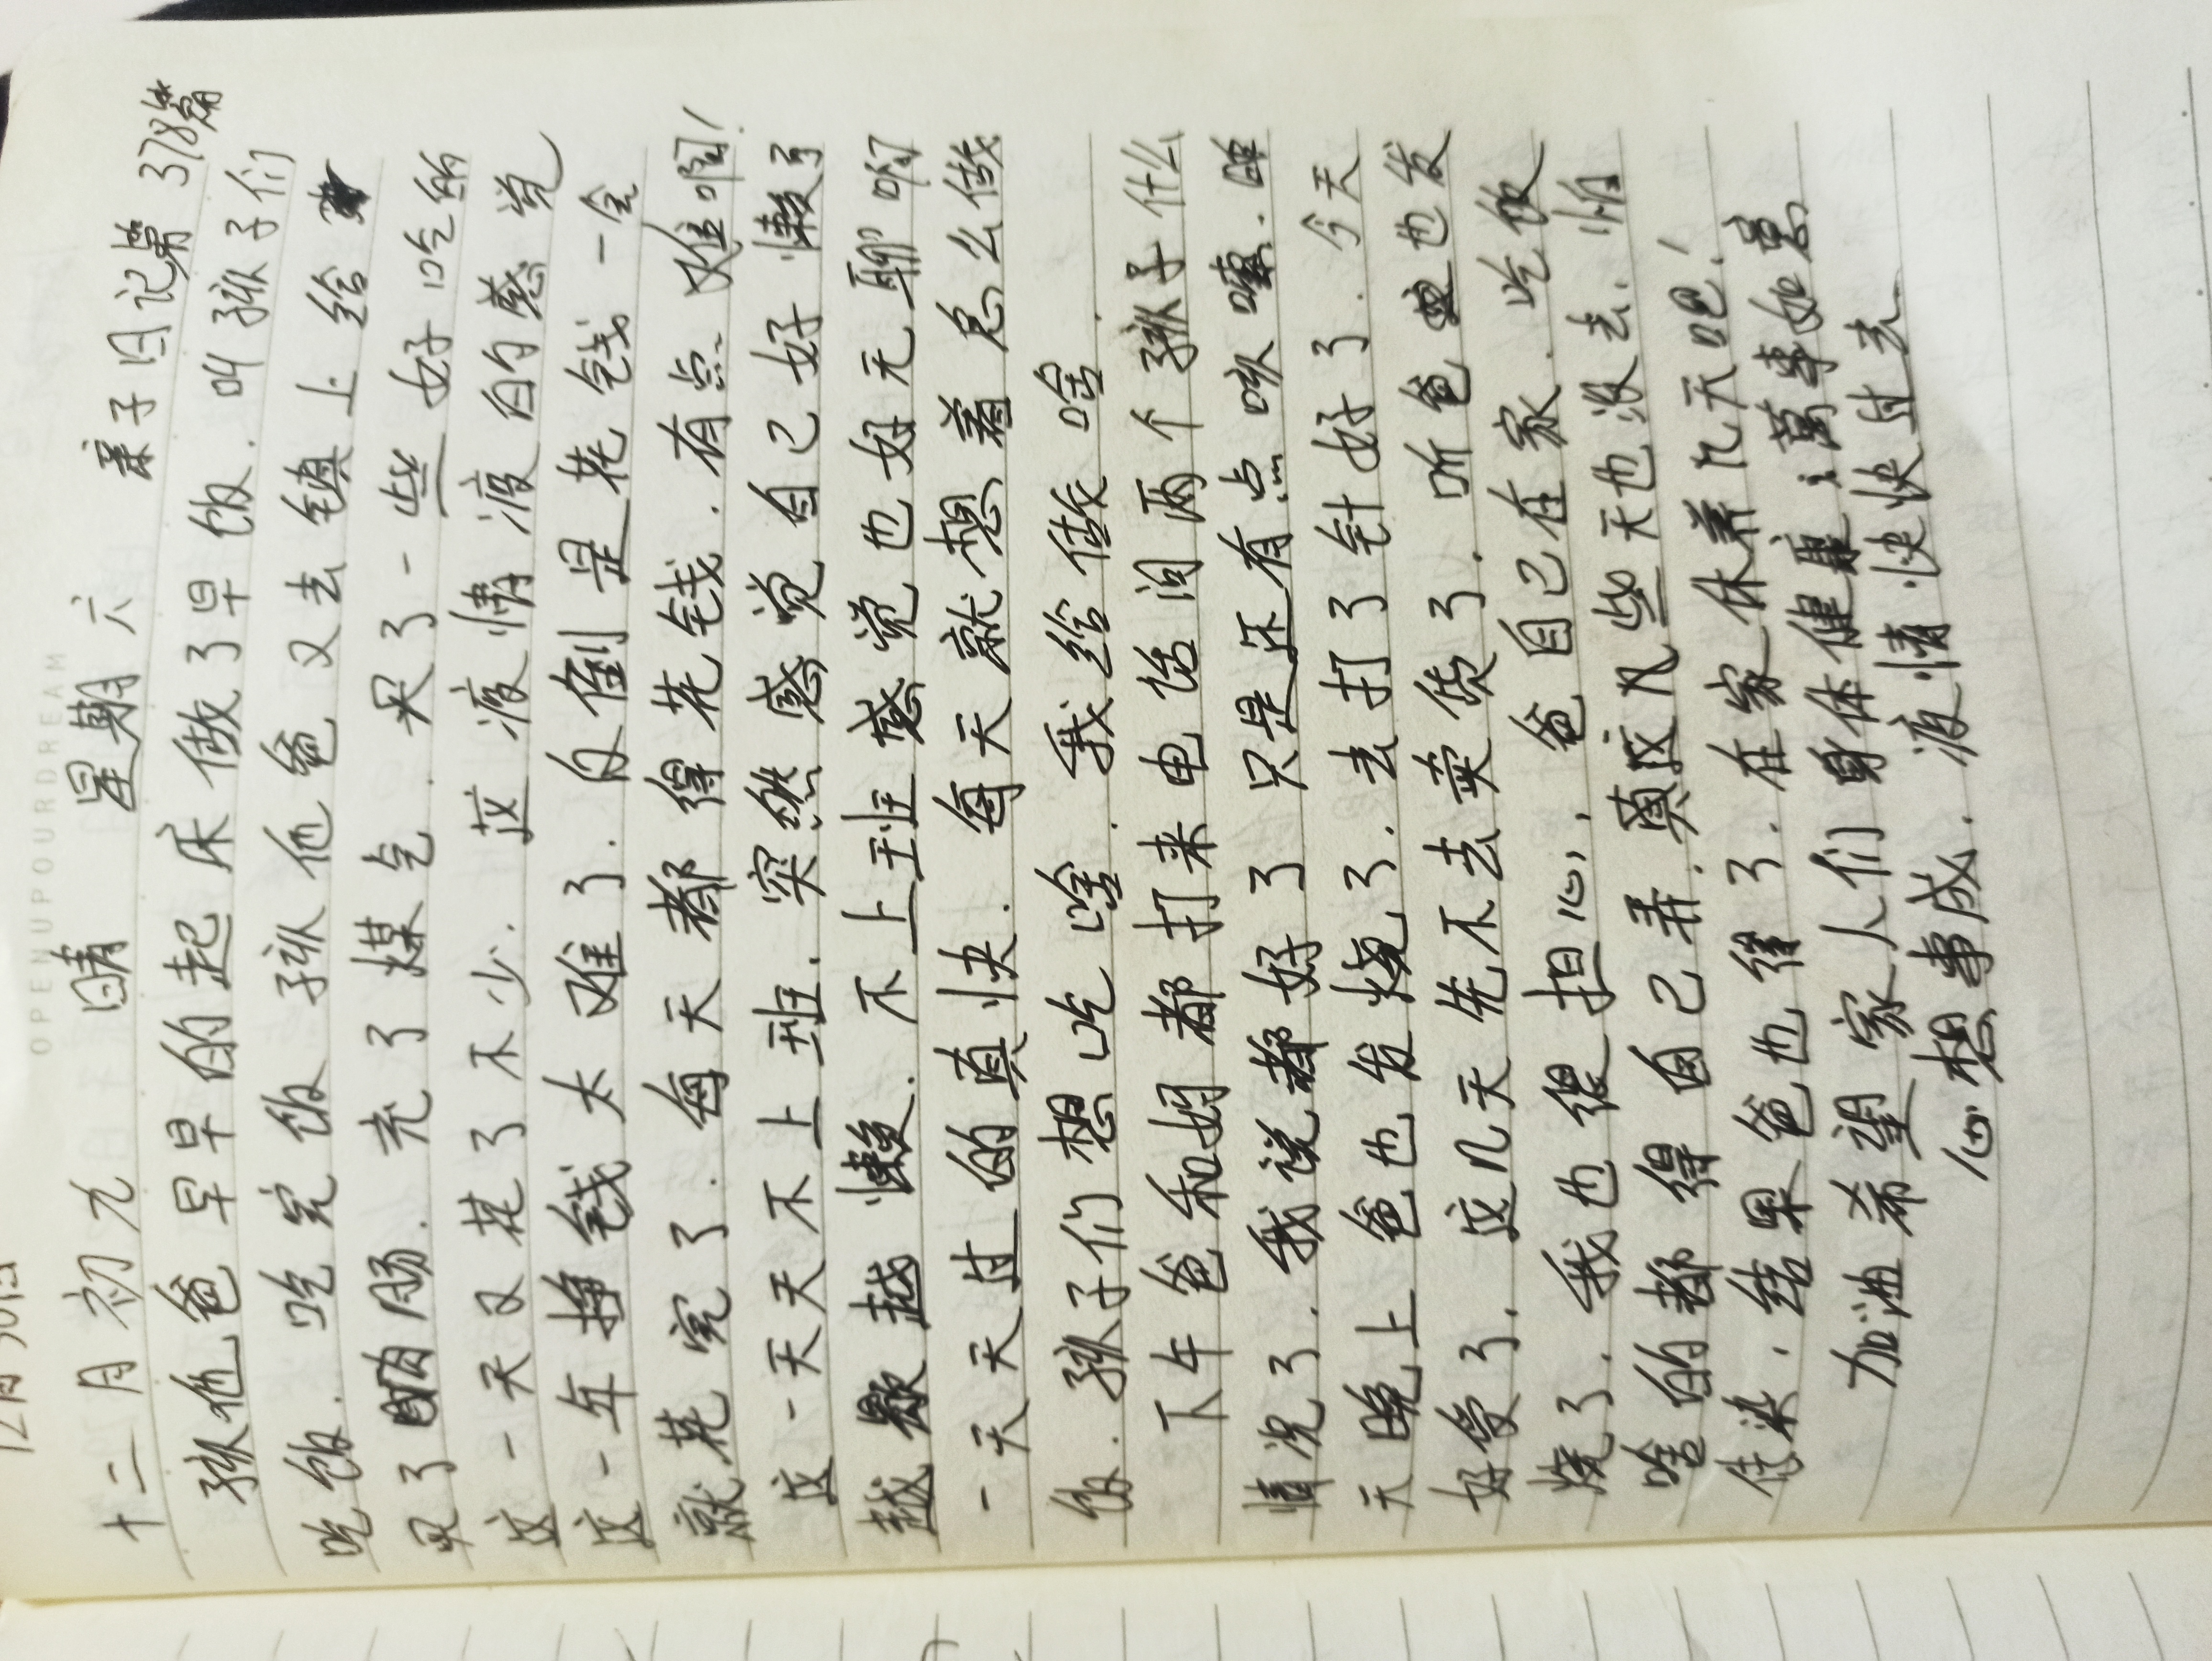 OPENUPOURDREAM
十二月初九 晴 星期六 亲子日记第378篇
孩他爸早早的起床做了早饭.叫孩子们
吃饭.吃完饭孩他爸又去镇上给
买了肉肠.充了煤气.买了一些好吃的
这一天又花了不少.这疫情疫的感觉
这一年挣钱太难了.反倒是花钱一会
就花完了.每天都得花钱.有点难啊!
这一天天不上班.突然感觉自己好懒了
越 越懒.不上班感觉也好无聊啊
一天天过的真快.每天就想着怎么做
饭.孩子们想吃啥.我给做啥.
下午爸和妈都打来电话问两个孩子什么
情况了.我说都好了只是还有点咳嗽.昨
天晚上爸也发烧了.去打了针好了.今天
好受了.这几天先不去卖货了.听爸 也发
烧了.我也很担心,爸自己在家.吃饭
啥的都得自己弄.真这几些天也没去.怕
传染.结果爸也 了.在家休养几天吧!
加油希望家人们身体健康;万事如意
心想事成.疫情快快过去.